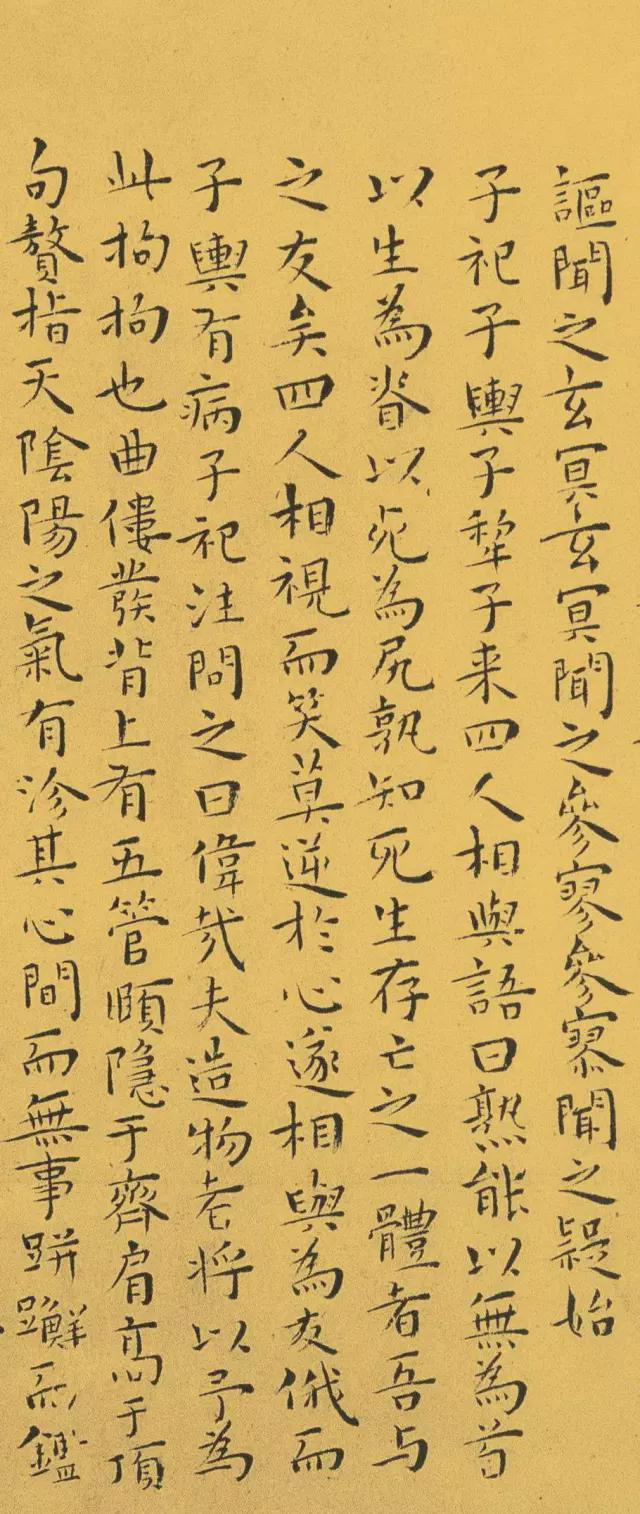 謳聞之玄冥玄冥聞之參寥參寥聞之疑始
子祀子輿子犂子来四人相與語曰熟能以無為首
以生為脊以死為尻孰知死生存亡之一體者吾与
之友矣四人相視而笑莫逆於心遂相與為友俄而
子輿有病子祀注問之曰偉哉夫造物者将以予為
此拘拘也曲僂發背上有五管頤隐于齊肩高于頂
句贅指天陰陽之氣有沴其心間而無事跰𨇤而鑑